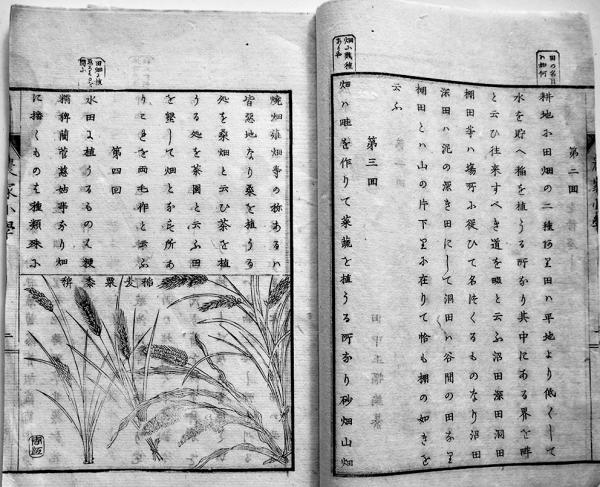 田の名目ハ如何
第二回
耕地に田畑の二種あり田ハ平地より低くして
水を貯へ稲を植うる所なり其中にある界を畔
と云ひ往来すべき道を畷と云ふ沼田深田洞田
棚田等ハ場所に従ひて名づくるものなり沼田
深田ハ泥の深き田にして洞田ハ谷間の田なり
棚田とハ山の片下りに在りて恰も棚の如きを
云ふ
畑に幾種ありや
第三回
畑ハ畦を作りて菜蔬を植うる所なり砂畑山畑
焼畑雑畑等の称あるハ
皆悪地なり桑を植うる
処を桑畑と云ひ茶を植
うる処を茶園と云ふ田
を墾して畑となす所あ
り を両毛作と云ふ
第四回
水田に植うるものハ粳
糯稗藺菅慈姑等なり畑
に播くものも種類殊に
稲麦粟黍稗
農家小學